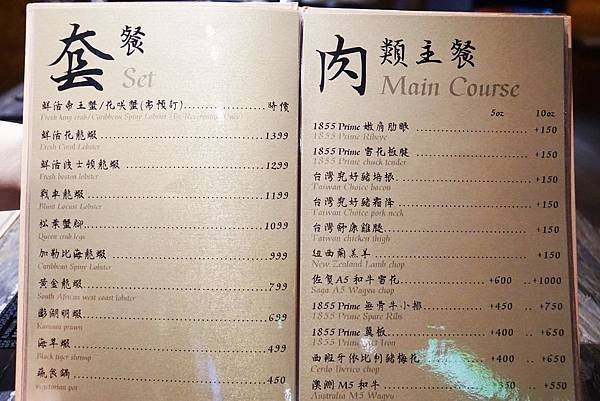 套餐
Set
鮮活帝王蟹/花咲蟹(需預訂)............時價
Fresh king crab/ Caribbean Spiny Lobster (By Reservation Only)
鮮活花龍蝦............1399
Fresh Coral Lobster
鮮活波士頓龍蝦............1299
Fresh boston lobster
戰車龍蝦............1199
Blunt Locust Lobster
松葉蟹腳............1099
Queen crab legs
加勒比海龍蝦............999
Caribbean Spiny Lobster
黃金龍蝦............799
South African west coast lobster
澎湖明蝦............699
Kuruma prawn
海草蝦............499
Black tiger shrimp
蔬食鍋............450
vegetarian pot
肉類主餐
Main Course
5oz 10oz
1855 Prime 嫩肩肋眼............+150
1855 Prime Ribeye
1855 Prime 雪花板腱............+150
1855 Prime chuck tender
台灣究好豬培根............+150
Taiwan Choice bacon
台灣究好豬霜降............+150
Taiwan Choice pork neck
台灣舒康雞腿............+150
Taiwan chicken thigh
紐西蘭羔羊............+150
New Zealand Lamb chop
佐賀A5和牛雪花............+600 ...+1000
Saga A5 Wagyu chop
1855 Prime 無骨牛小排............+450 ...+750
1855 Prime Spare Ribs
1855 Prime 翼板............+400 ...+650
1855 Prime Flat Iron
西班牙依比利豬梅花............+400 ...+650
Cerdo Iberico chop
澳洲 M5 和牛............+350 ...+550
Australia M5 Wagyu